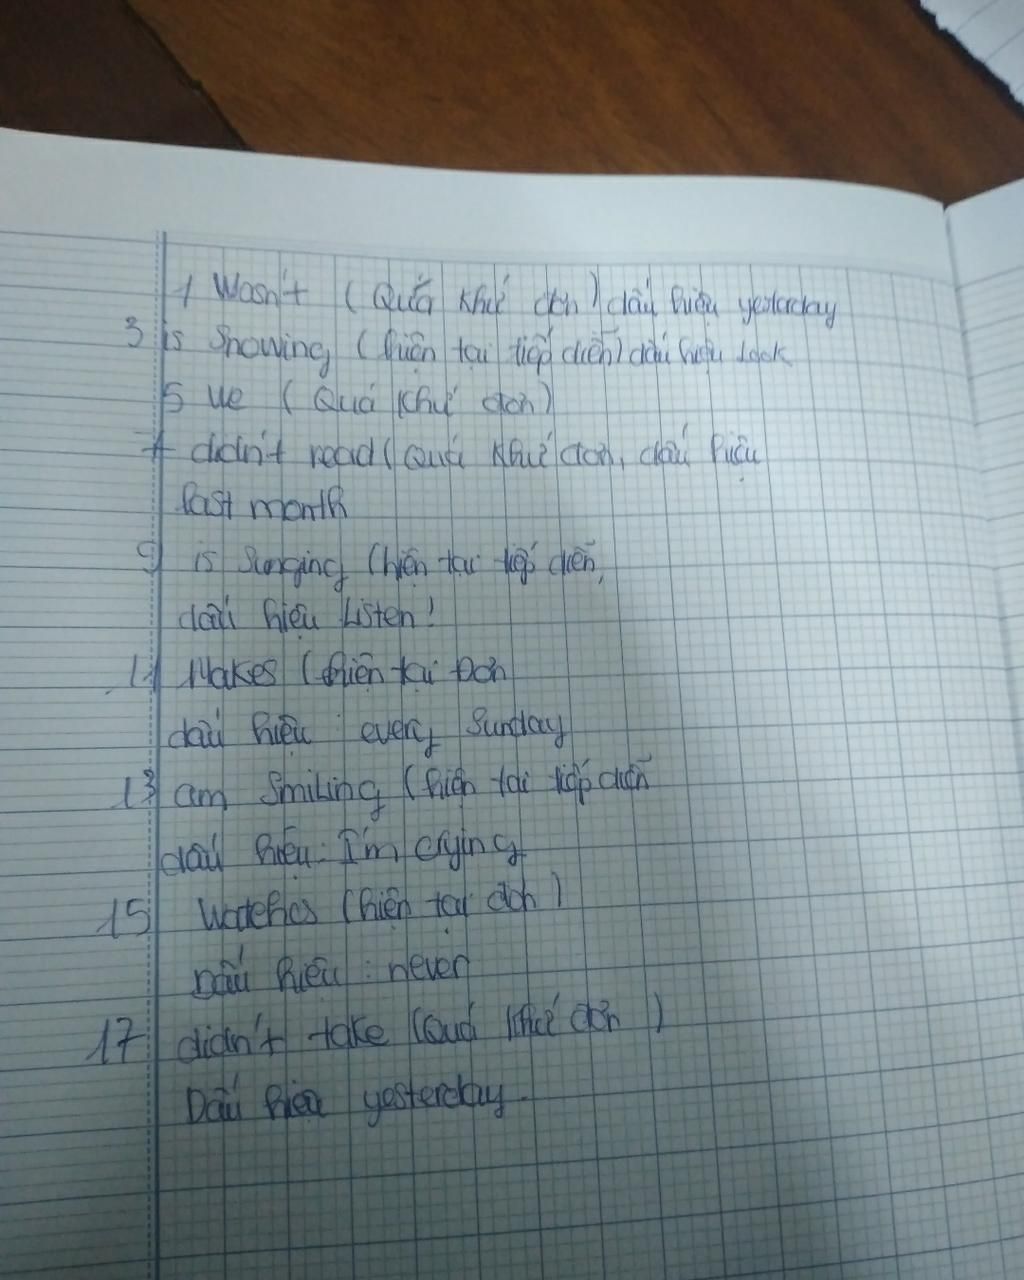 1 Wasn't (Quá khứ đơn) dấu hiệu yesterday
3 is Snowing (hiện tại tiếp diễn) dấu hiệu Look
5 (Quá khứ đơn)
7 didn't read (Quá khứ đơn, dấu hiệu
last month
9 is Singing (hiện tại tiếp diễn,
dấu hiệu Listen!
11 Makes (hiện tại Đơn
dấu hiệu: every Sunday
13 am Smiling (hiện tại tiếp diễn
dấu hiệu: I'm crying
15 Watches (hiện tại đơn)
Dấu hiệu: never
17 didn't take (Quá khứ đơn)
Dấu hiệu yesterday.